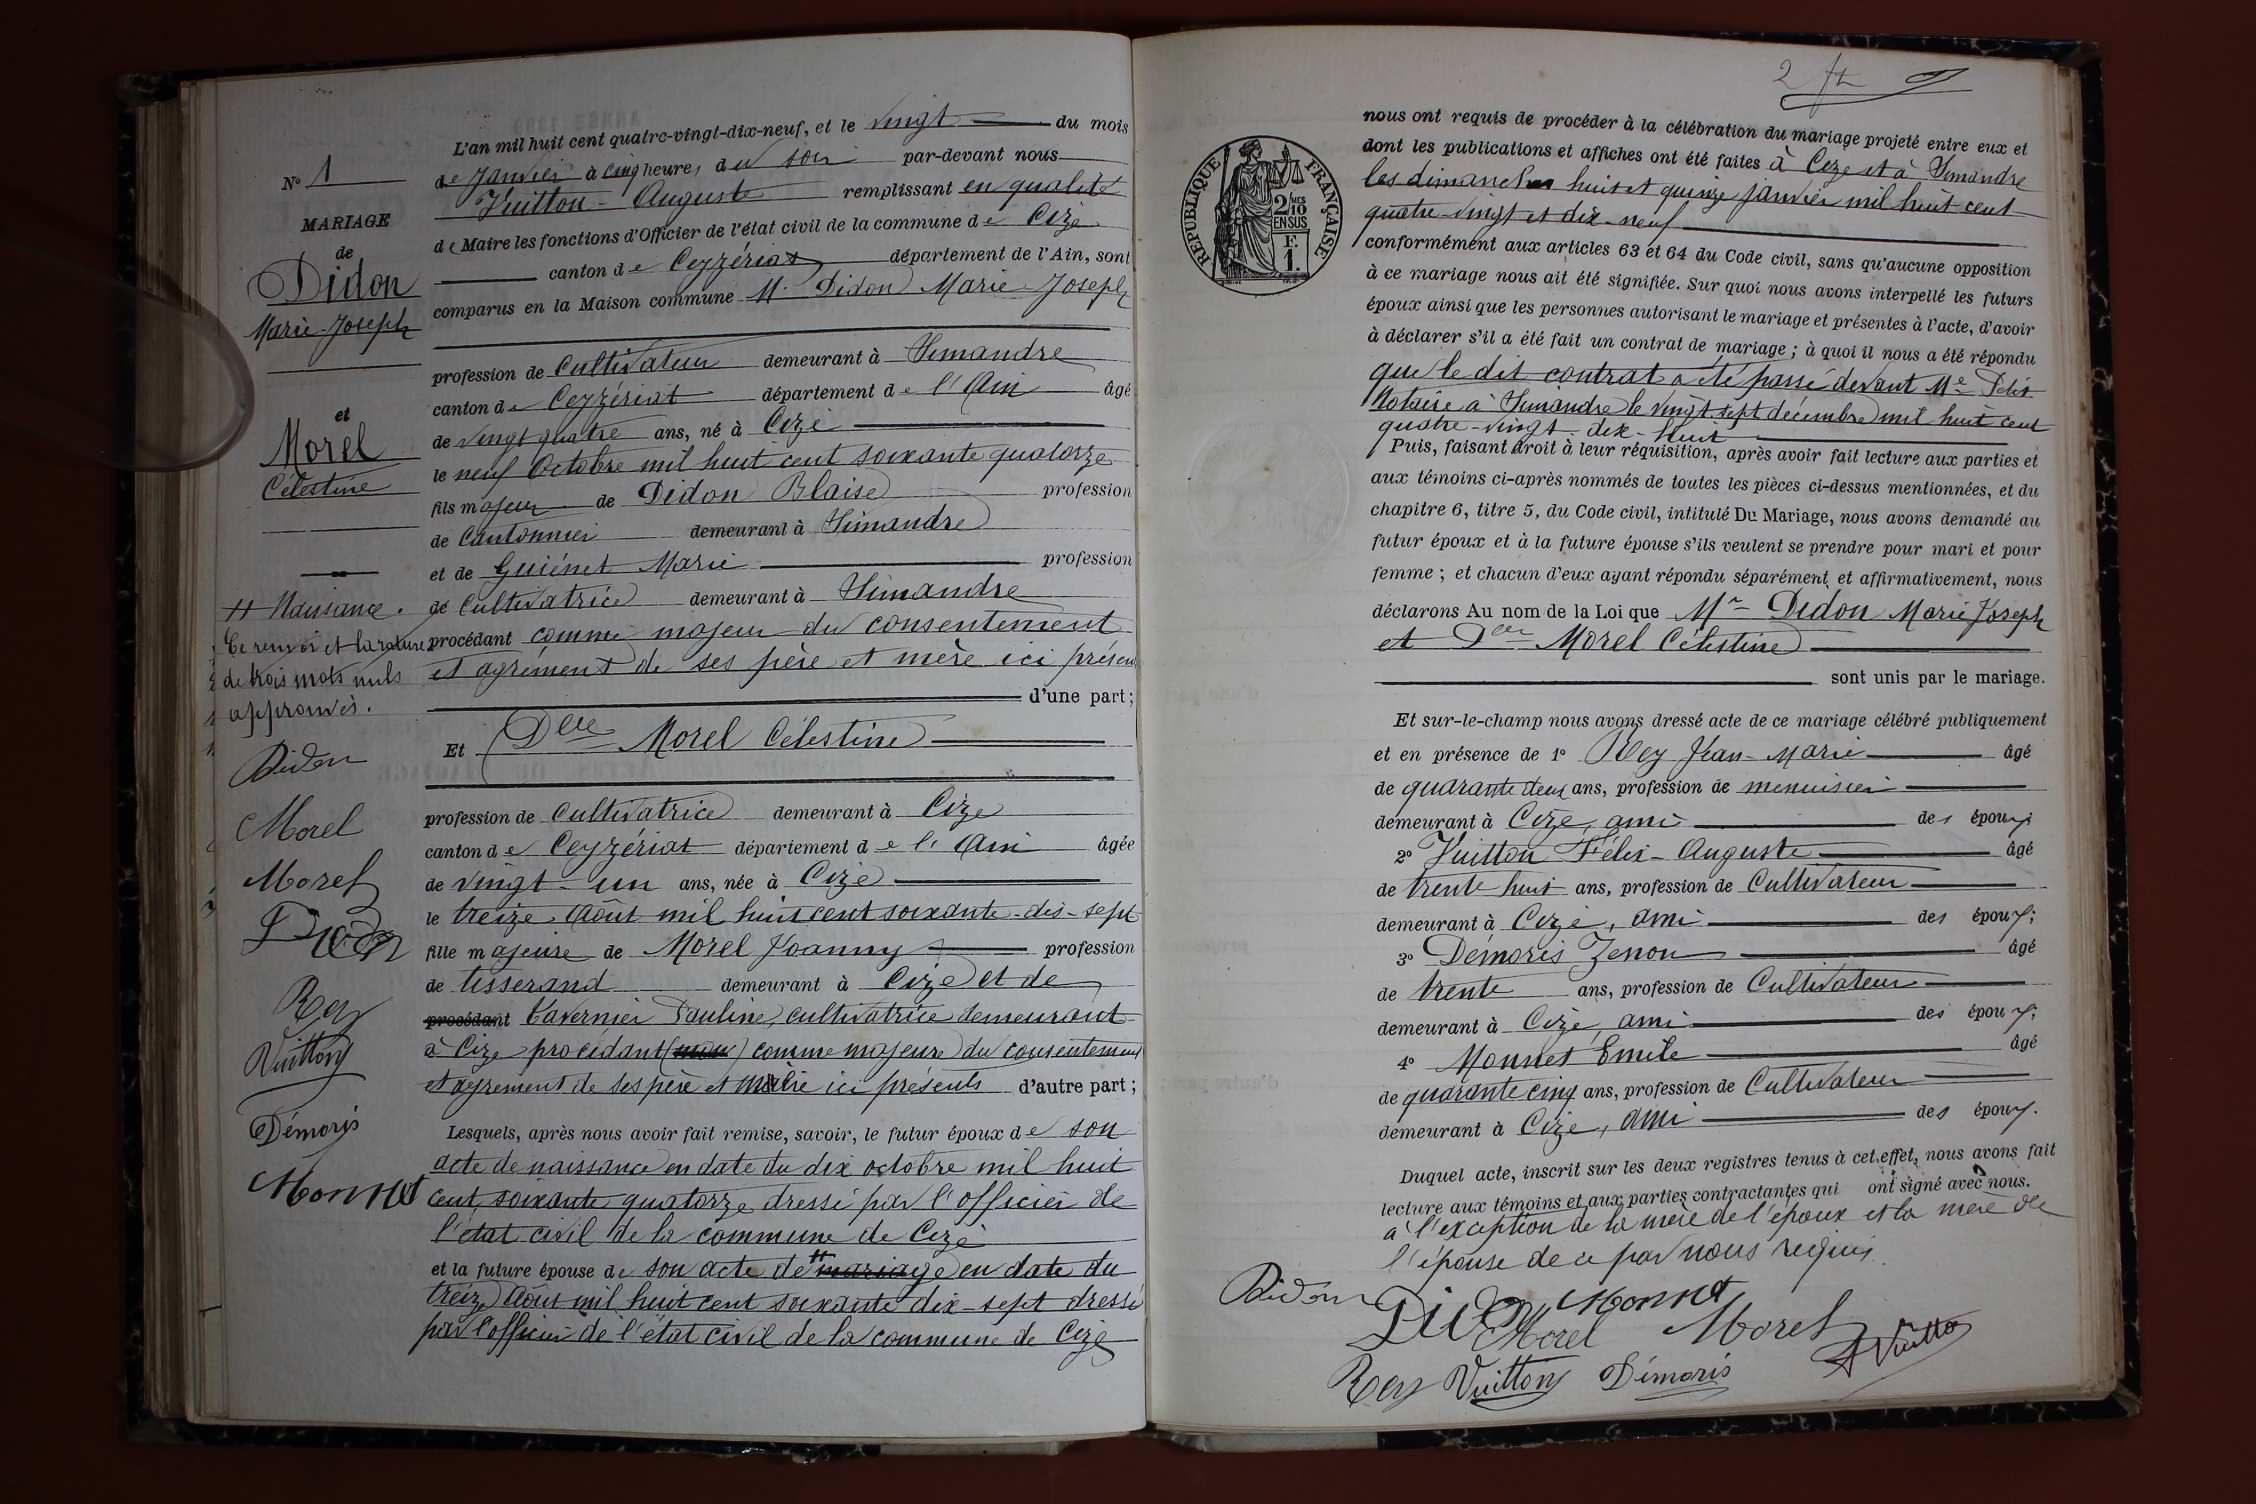 N° 1
MARIAGE
de
Didon
Marie-Joseph
et
Morel
Célestine
H Naissance.
Ce renvoi et la rature
de trois mots nuls
approuvés.
Didon
Morel
Morel
Didon
Rey
Vuitton
Démoris
Monnet
L'an mil huit cent quatre-vingt-dix-neuf, et le vingt du mois
de Janvier à cinq heures du soir par-devant nous
Vuitton - Auguste remplissant en qualité
de Maire les fonctions d'Officier de l'état civil de la commune de Cize
canton de Ceyzériat département de l'Ain, sont
comparus en la Maison commune M. Didon Marie-Joseph
profession de Cultivateur demeurant à Simandre
canton de Ceyzériat département de l'Ain âgé
de vingt quatre ans, né à Cize
le neuf Octobre mil huit cent soixante quatorze
fils majeur de Didon Blaise profession
de Cantonnier demeurant à Simandre
et de Guiénet Marie profession
de Cultivatrice demeurant à Simandre
procédant comme majeur du consentement
et agrément de ses père et mère ici présents
d'une part;
Et Delle Morel Célestine
profession de Cultivatrice demeurant à Cize
canton de Ceyzériat département de l'Ain âgée
de vingt-un ans, née à Cize
le treize Août mil huit cent soixante-dix-sept
fille majeure de Morel Joanny profession
de tisserand demeurant à Cize et de
procédant Tavernier Pauline, cultivatrice demeurant
à Cize procédant comme majeure du consentement
et agrément de ses père et mère ici présents d'autre part;
Lesquels, après nous avoir fait remise, savoir, le futur époux de son
acte de naissance en date du dix octobre mil huit
cent soixante quatorze dressé par l'officier de
l'état civil de la commune de Cize
et la future épouse de son acte de H mariage en date du
treize Août mil huit cent soixante dix-sept dressé
par l'officier de l'état civil de la commune de Cize
2
RÉPUBLIQUE FRANÇAISE
2/10 MES
EN SUS
F.
1.
nous ont requis de procéder à la célébration du mariage projeté entre eux et
dont les publications et affiches ont été faites à Cize et à Simandre
les dimanches huit et quinze janvier mil huit cent
quatre-vingt et dix-neuf
conformément aux articles 63 et 64 du Code civil, sans qu'aucune opposition
à ce mariage nous ait été signifiée. Sur quoi nous avons interpellé les futurs
époux ainsi que les personnes autorisant le mariage et présentes à l'acte, d'avoir
à déclarer s'il a été fait un contrat de mariage; à quoi il nous a été répondu
que le dit contrat a été passé devant Me
Notaire à Simandre le vingt-sept décembre mil huit cent
quatre-vingt-dix-huit
Puis, faisant droit à leur réquisition, après avoir fait lecture aux parties et
aux témoins ci-après nommés de toutes les pièces ci-dessus mentionnées, et du
chapitre 6, titre 5, du Code civil, intitulé Du Mariage, nous avons demandé au
futur époux et à la future épouse s'ils veulent se prendre pour mari et pour
femme; et chacun d'eux ayant répondu séparément et affirmativement, nous
déclarons Au nom de la Loi que Mr Didon Marie Joseph
et Delle Morel Célestine
sont unis par le mariage.
Et sur-le-champ nous avons dressé acte de ce mariage célébré publiquement
et en présence de 1° Rey Jean-Marie âgé
de quarante deux ans, profession de menuisier
demeurant à Cize, ami des époux;
2° Vuitton Félix-Auguste âgé
de trente huit ans, profession de Cultivateur
demeurant à Cize, ami des époux;
3° Démoris Zenon âgé
de trente ans, profession de Cultivateur
demeurant à Cize, ami des époux;
4° Monnet Emile âgé
de quarante cinq ans, profession de Cultivateur
demeurant à Cize, ami des époux.
Duquel acte, inscrit sur les deux registres tenus à cet effet, nous avons fait
lecture aux témoins et aux parties contractantes qui ont signé avec nous.
à l'exception de la mère de l'époux et la mère de
l'épouse de ce par nous requis.
Didon Didon Monnet
Morel Morel
Rey Vuitton Démoris A Vuitton